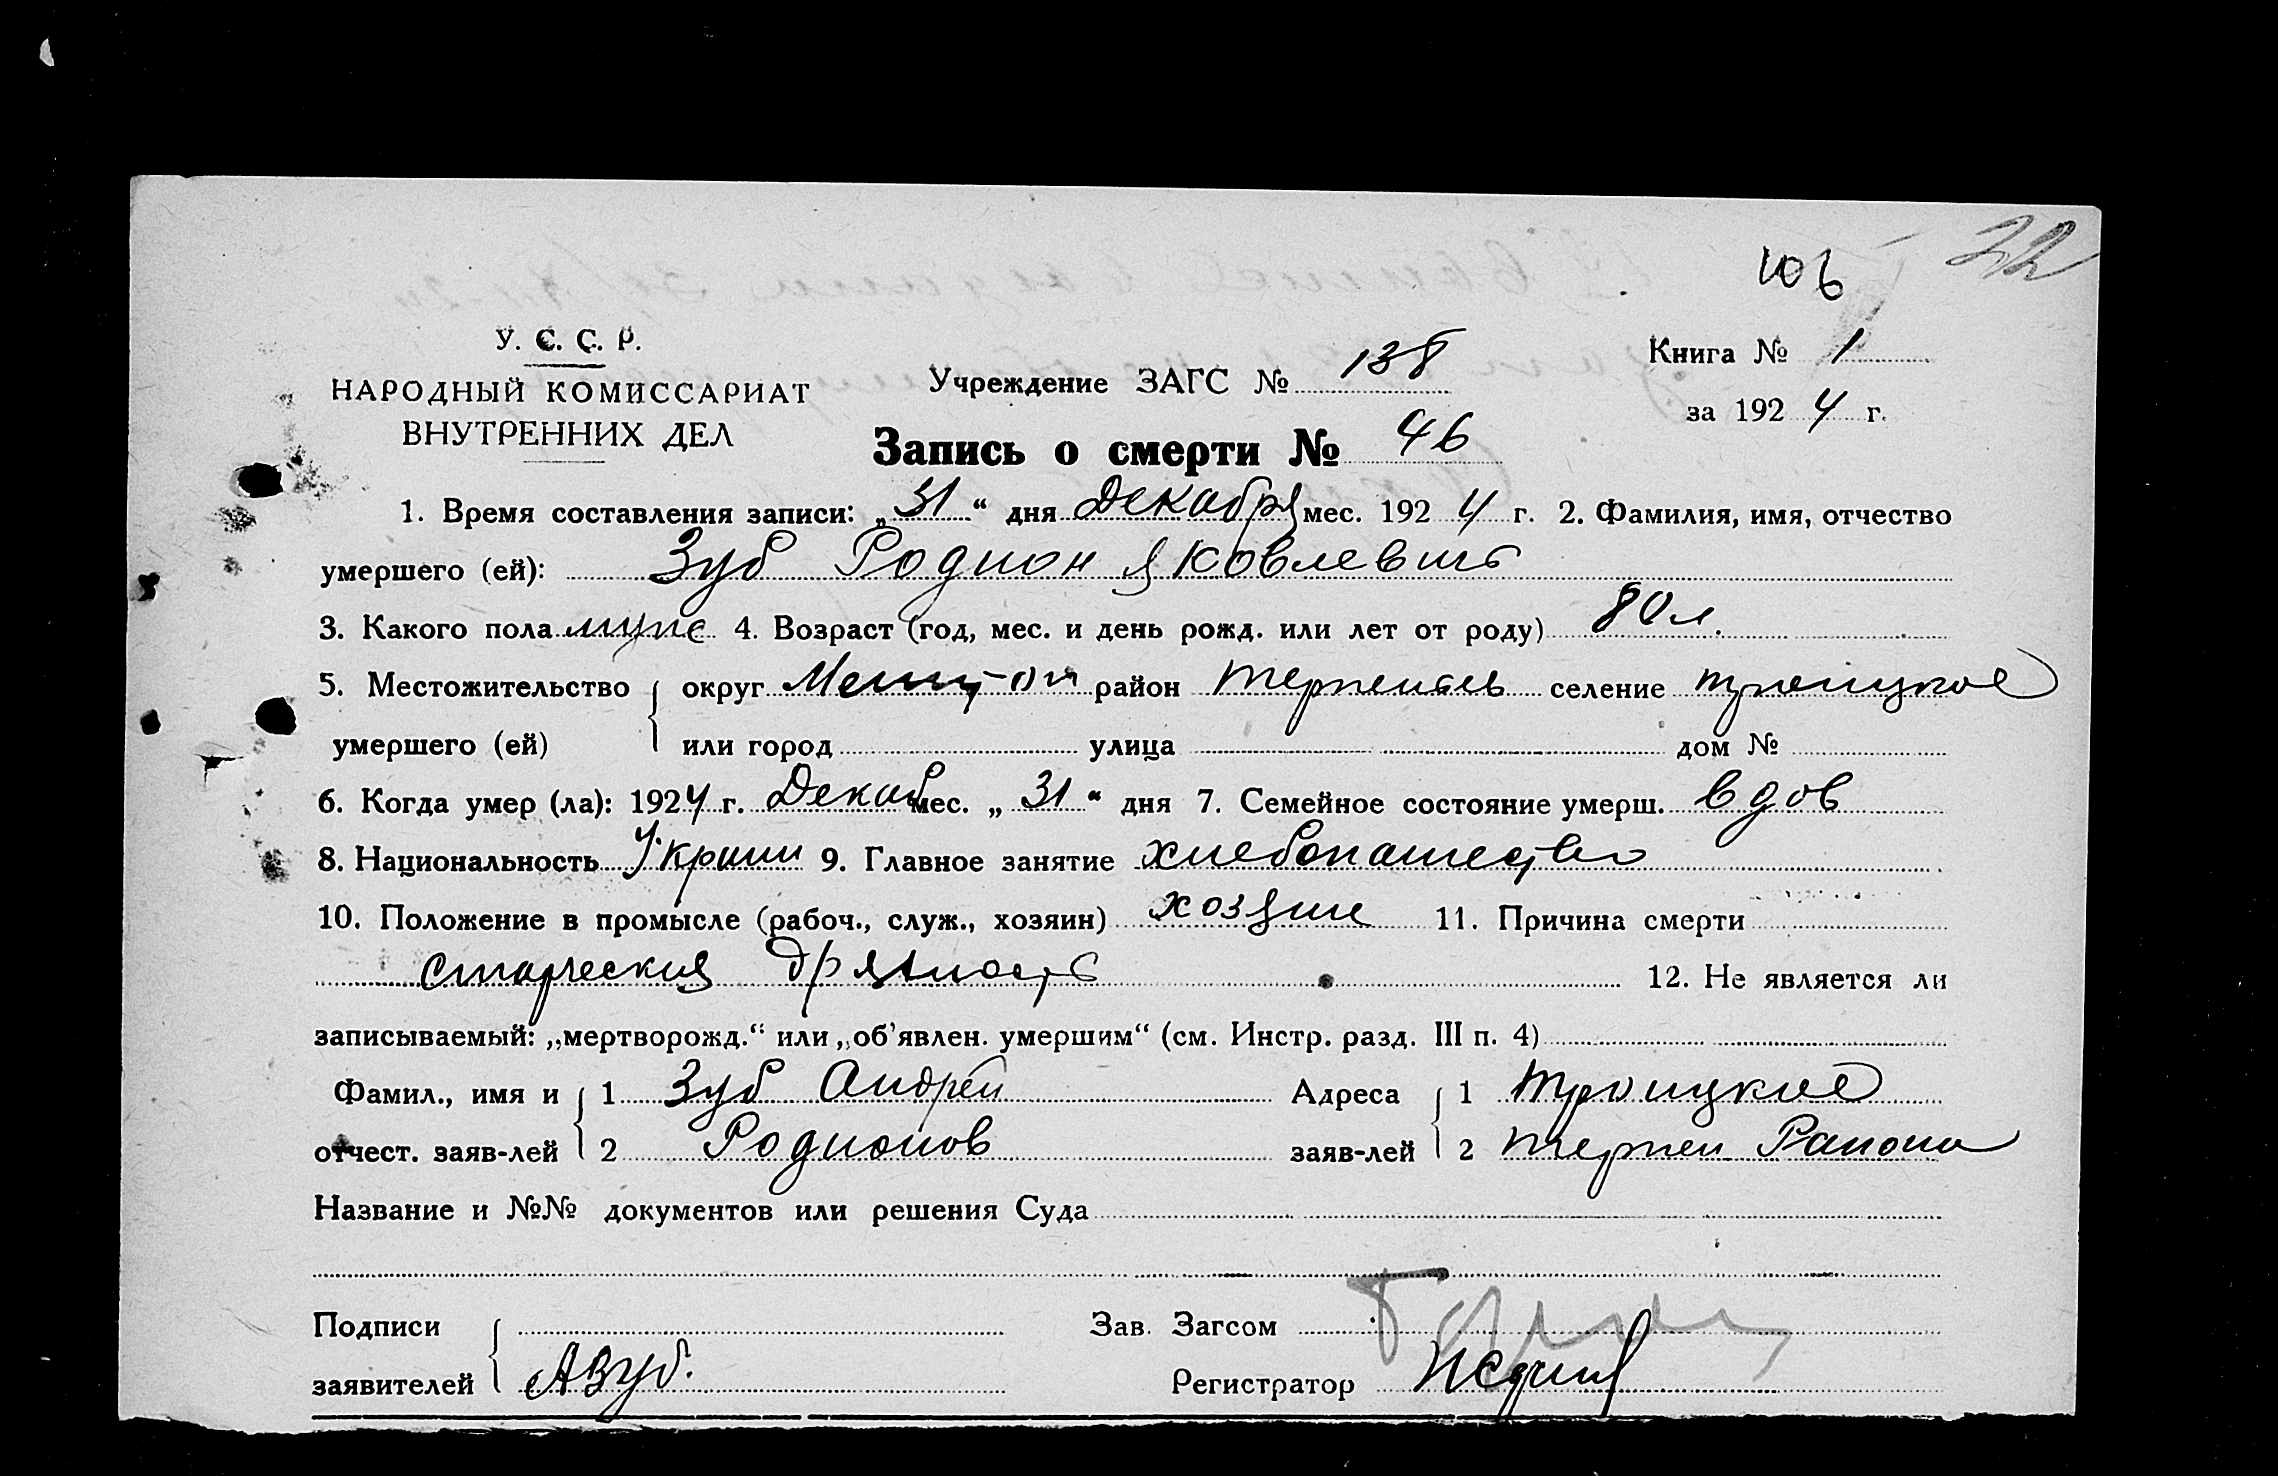 32
106
У. С. С. Р.
НАРОДНЫЙ КОМИССАРИАТ
ВНУТРЕННИХ ДЕЛ
Учреждение ЗАГС № 138
Книга № 1
за 1924 г.
Запись о смерти № 46
1. Время составления записи: „31“ дня Декабря мес. 1924 г. 2. Фамилия, имя, отчество
умершего (ей): Зуб Родион Яковлевич
3. Какого пола муж 4. Возраст (год, мес. и день рожд. или лет от роду) 80 л.
5. Местожительство округ район Терпеньев селение Троицкое
умершего (ей) или город улица дом №
6. Когда умер (ла): 1924 г. Декаб мес. „31“ дня 7. Семейное состояние умерш. вдов
8. Национальность Украин 9. Главное занятие хлебопашество
10. Положение в промысле (рабоч., служ., хозяин) хозяин 11. Причина смерти
старческая дряхлость 12. Не является ли
записываемый: „мертворожд.“ или „об'явлен. умершим“ (см. Инстр. разд. III п. 4)
Фамил., имя и 1 Зуб Андрей Адреса 1 Троицкое
отчест. заяв-лей 2 Родионов заяв-лей 2 Терпен Района
Название и №№ документов или решения Суда
Подписи Зав. Загсом
заявителей АЗуб. Регистратор